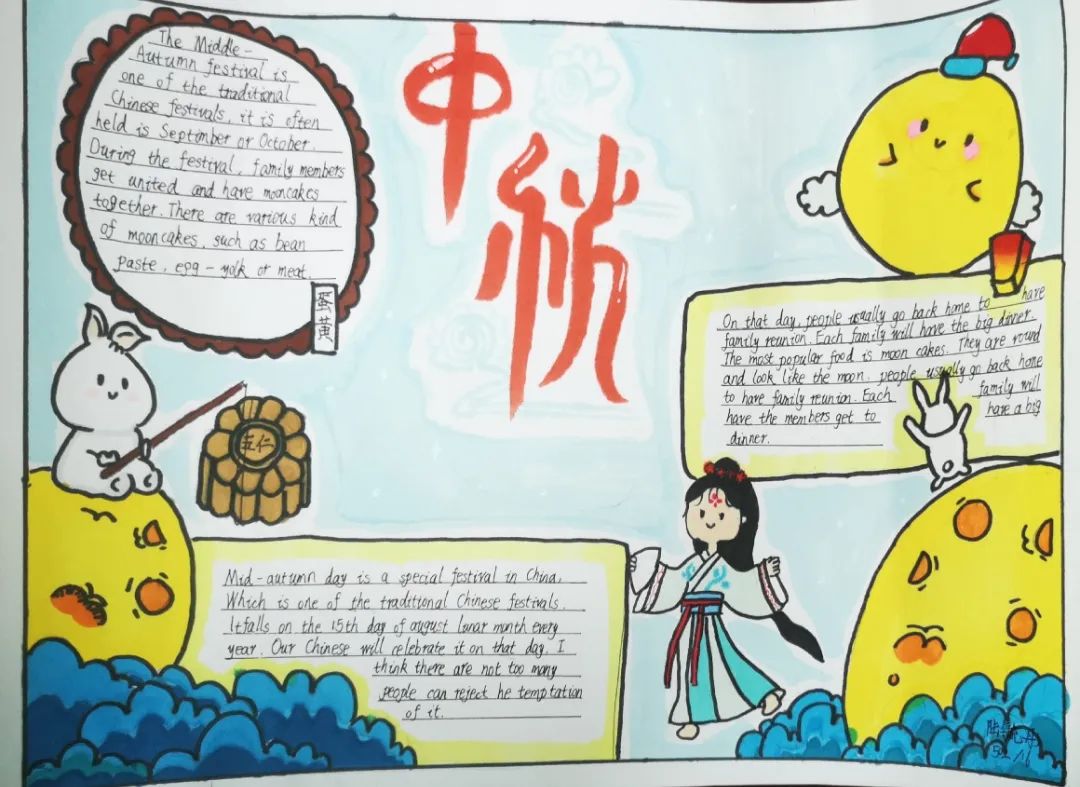 The Middle-
Autumn festival is
one of the traditional
Chinese festivals, it is often
held is September or October.
During the festival, family members
get united and have mooncakes
together. There are various kind
of mooncakes, such as bean
paste, egg-yolk or meat.
蛋黄
中秋
On that day, people usually go back home to have
family reunion. Each family will have the big dinner
The most popular food is moon cakes. They are round
and look like the moon. people usually go back home
to have family reunion. Each family will
have the members get to have a big
dinner.
五仁
Mid-autumn day is a special festival in China,
Which is one of the traditional Chinese festivals.
Itfalls on the 15th day of august lunar month every
year. Our Chinese will celebrate it on that day. I
think there are not too many
people can reject he temptation
of it.